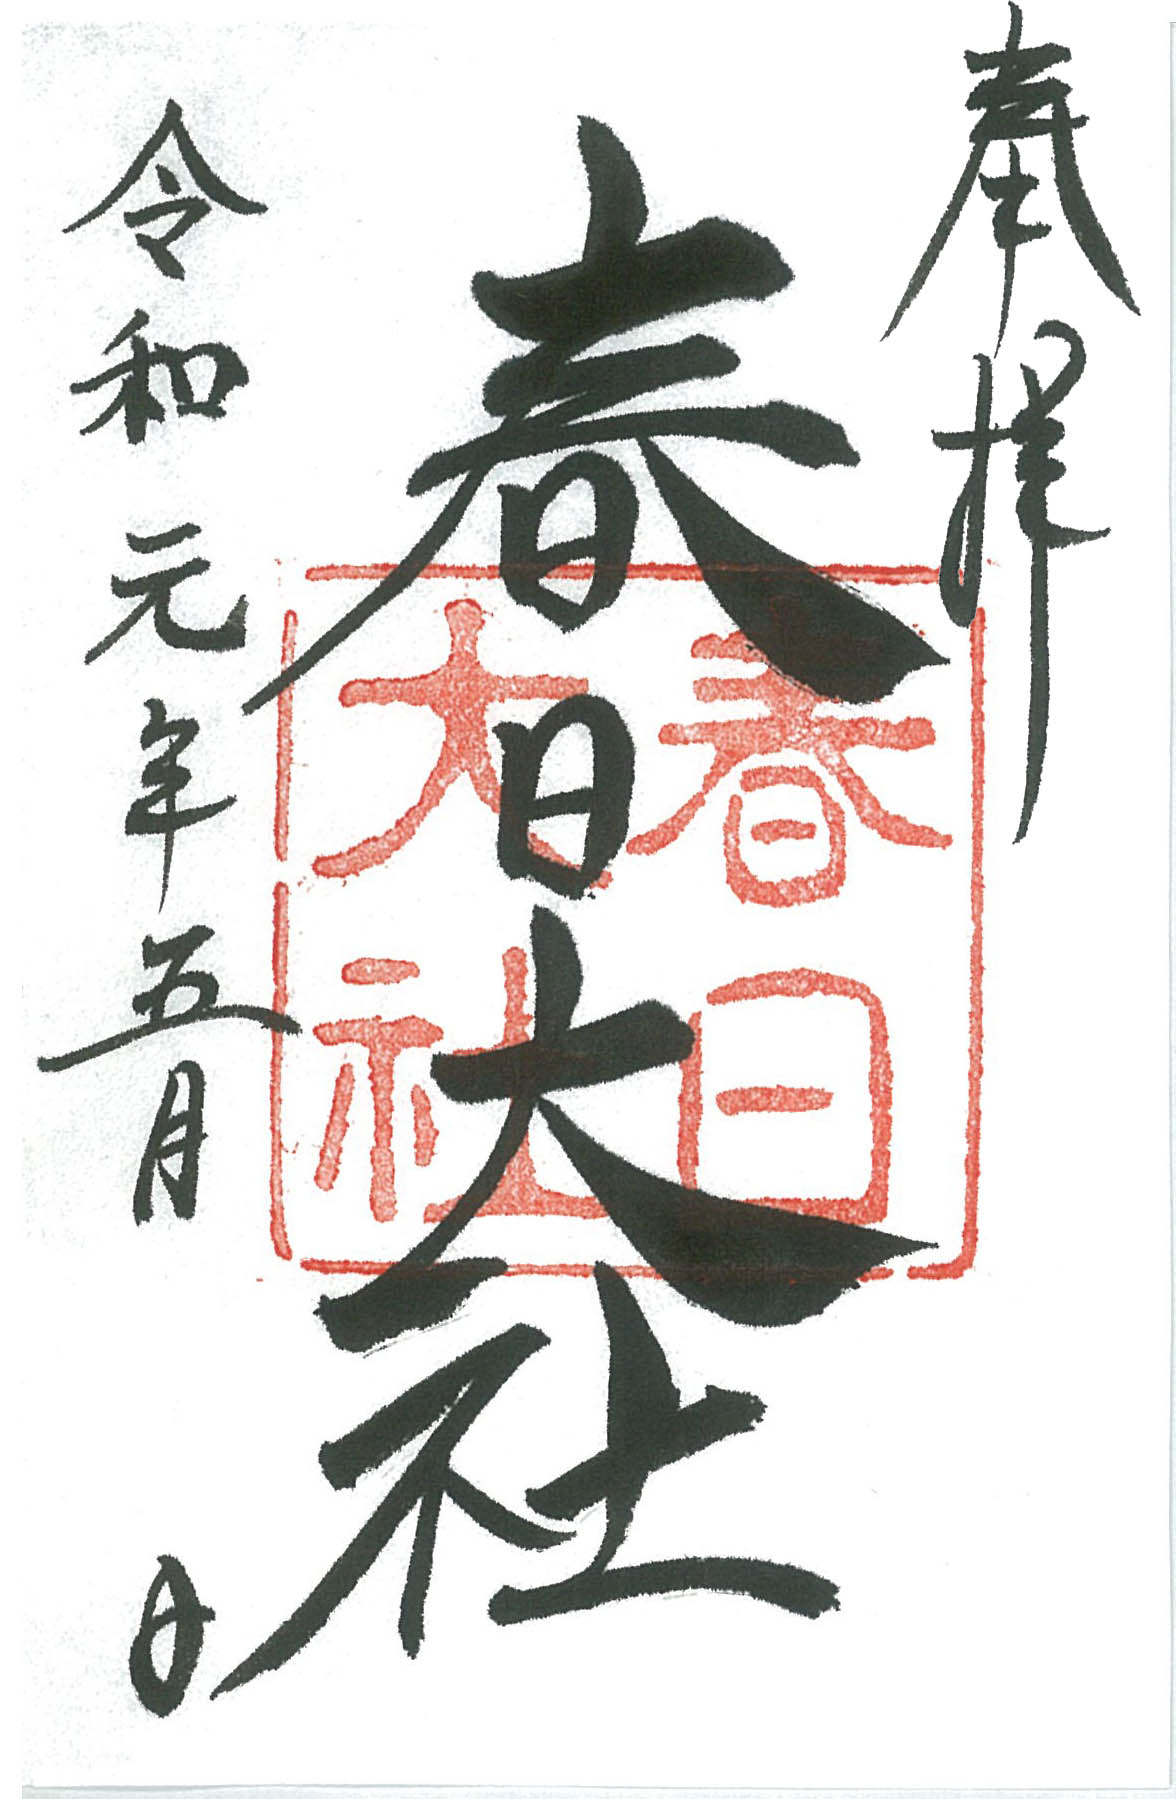 奉拝
春日大社
春日
大社
令和元年五月 日